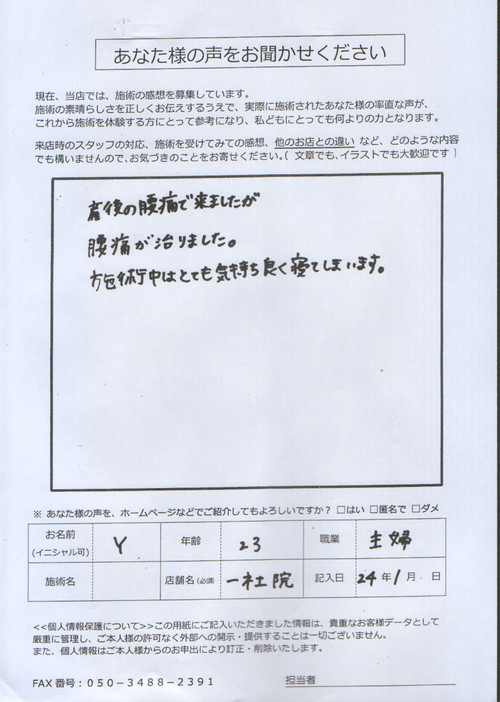 あなた様の声をお聞かせください
現在、当店では、施術の感想を募集しています。
施術の素晴らしさを正しくお伝えするうえで、実際に施術されたあなた様の率直な声が、
これから施術を体験する方にとって参考になり、私どもにとっても何よりの力となります。
来店時のスタッフの対応、施術を受けてみての感想、他のお店との違い など、どのような内容
でも構いませんので、お気づきのことをお寄せください。( 文章でも、イラストでも大歓迎です )
産後の腰痛で来ましたが
腰痛が治りました。
施術中はとても気持ち良く寝てしまいます。
※ あなた様の声を、ホームページなどでご紹介してもよろしいですか? □はい □匿名で □ダメ
お名前 (イニシャル可) Y 年齢 23 職業 主婦
施術名 店舗名 (必須) 一社院 記入日 24年1月 日
<<個人情報保護について>>この用紙にご記入いただきました情報は、貴重なお客様データとして
厳重に管理し、ご本人様の許可なく外部への開示・提供することは一切ございません。
また、個人情報はご本人様からのお申出により訂正・削除いたします。
FAX 番号:050-3488-2391 担当者